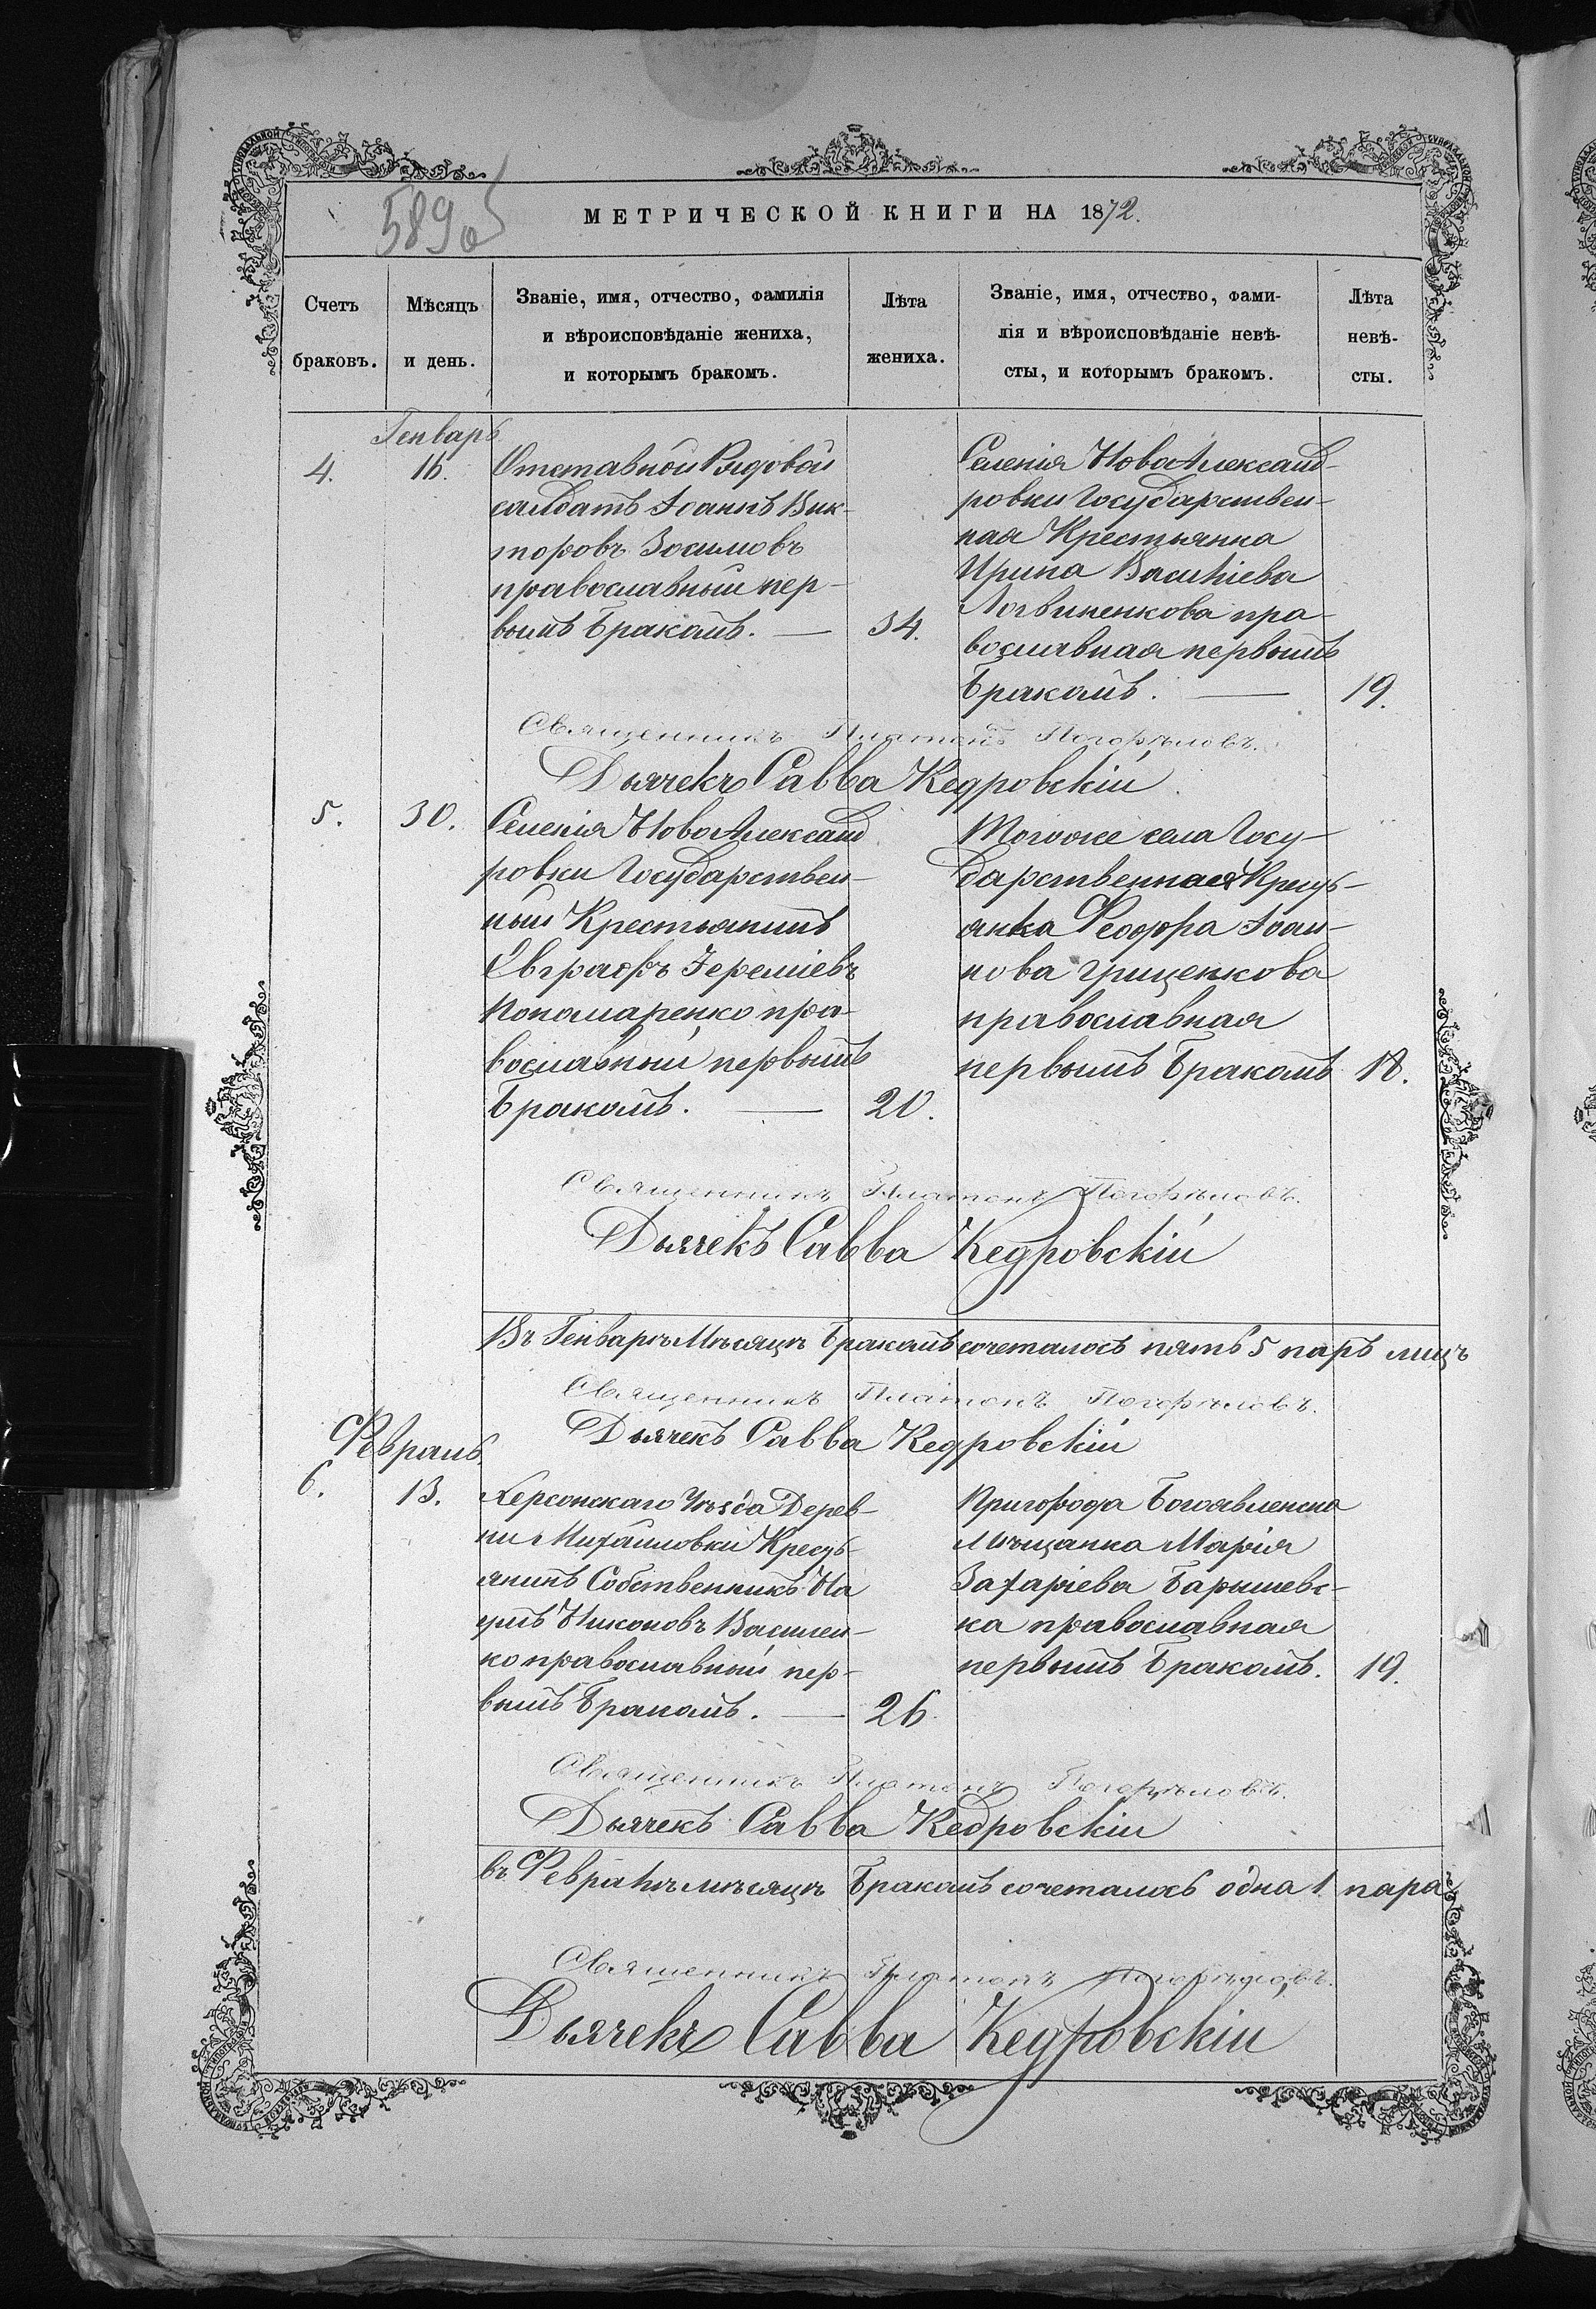 589об
МЕТРИЧЕСКОЙ КНИГИ НА 1872.
Счетъ браковъ.
Мѣсяцъ и день.
Званіе, имя, отчество, фамилія
и вѣроисповѣданіе жениха,
и которымъ бракомъ.
Лѣта жениха.
Званіе, имя, отчество, фами-
лія и вѣроисповѣданіе невѣ-
сты, и которымъ бракомъ.
Лѣта невѣ-
сты.
Генварь
4. 16.
Отставной Рядовой
салдатъ Іоаннъ Вик-
торовъ Зосимовъ
православный пер-
вымъ Бракомъ. — 34.
Селенія НовоАлександ-
ровки Государствен-
ная Крестьянка
Ирина Василіева
Логвиненкова пра-
вославная первымъ
Бракомъ. — 19.
Священникъ Платонъ Погорѣловъ.
Дьячекъ Савва Кедровскій.
5. 30.
Селенія НовоАлександ
ровки Государствен-
ный Крестьянинъ
Евграфъ Іереміевъ
Пономаренко пра-
вославный первымъ
Бракомъ. — 20.
Тогоже села Госу-
дарственная Кресть-
янка Феодора Іоан-
нова Грищенкова
православная
первымъ Бракомъ 18.
Священникъ Платонъ Погорѣловъ.
Дьячекъ Савва Кедровскій
Въ Генварѣ Мѣсяцѣ Бракомъ сочеталось пять 5 паръ лицъ
Священникъ Платонъ Погорѣловъ.
Дьячекъ Савва Кедровскій
Февраль.
6. 13.
Херсонскаго Уѣзда Дерев-
ни Михайловки Кресть-
янинъ Собственникъ На
умъ Никоновъ Василен-
ко православный пер-
вымъ Бракомъ. — 26.
Пригорода Богоявленска
Мѣщанка Марія
Захаріева Барышевс-
ка православная
первымъ Бракомъ. 19.
Священникъ Платонъ Погорѣловъ.
Дьячекъ Савва Кедровскій
въ Февралѣ мѣсяцѣ Бракомъ сочеталось одна 1 пара
Священникъ Платонъ Погорѣловъ.
Дьячекъ Савва Кедровскій